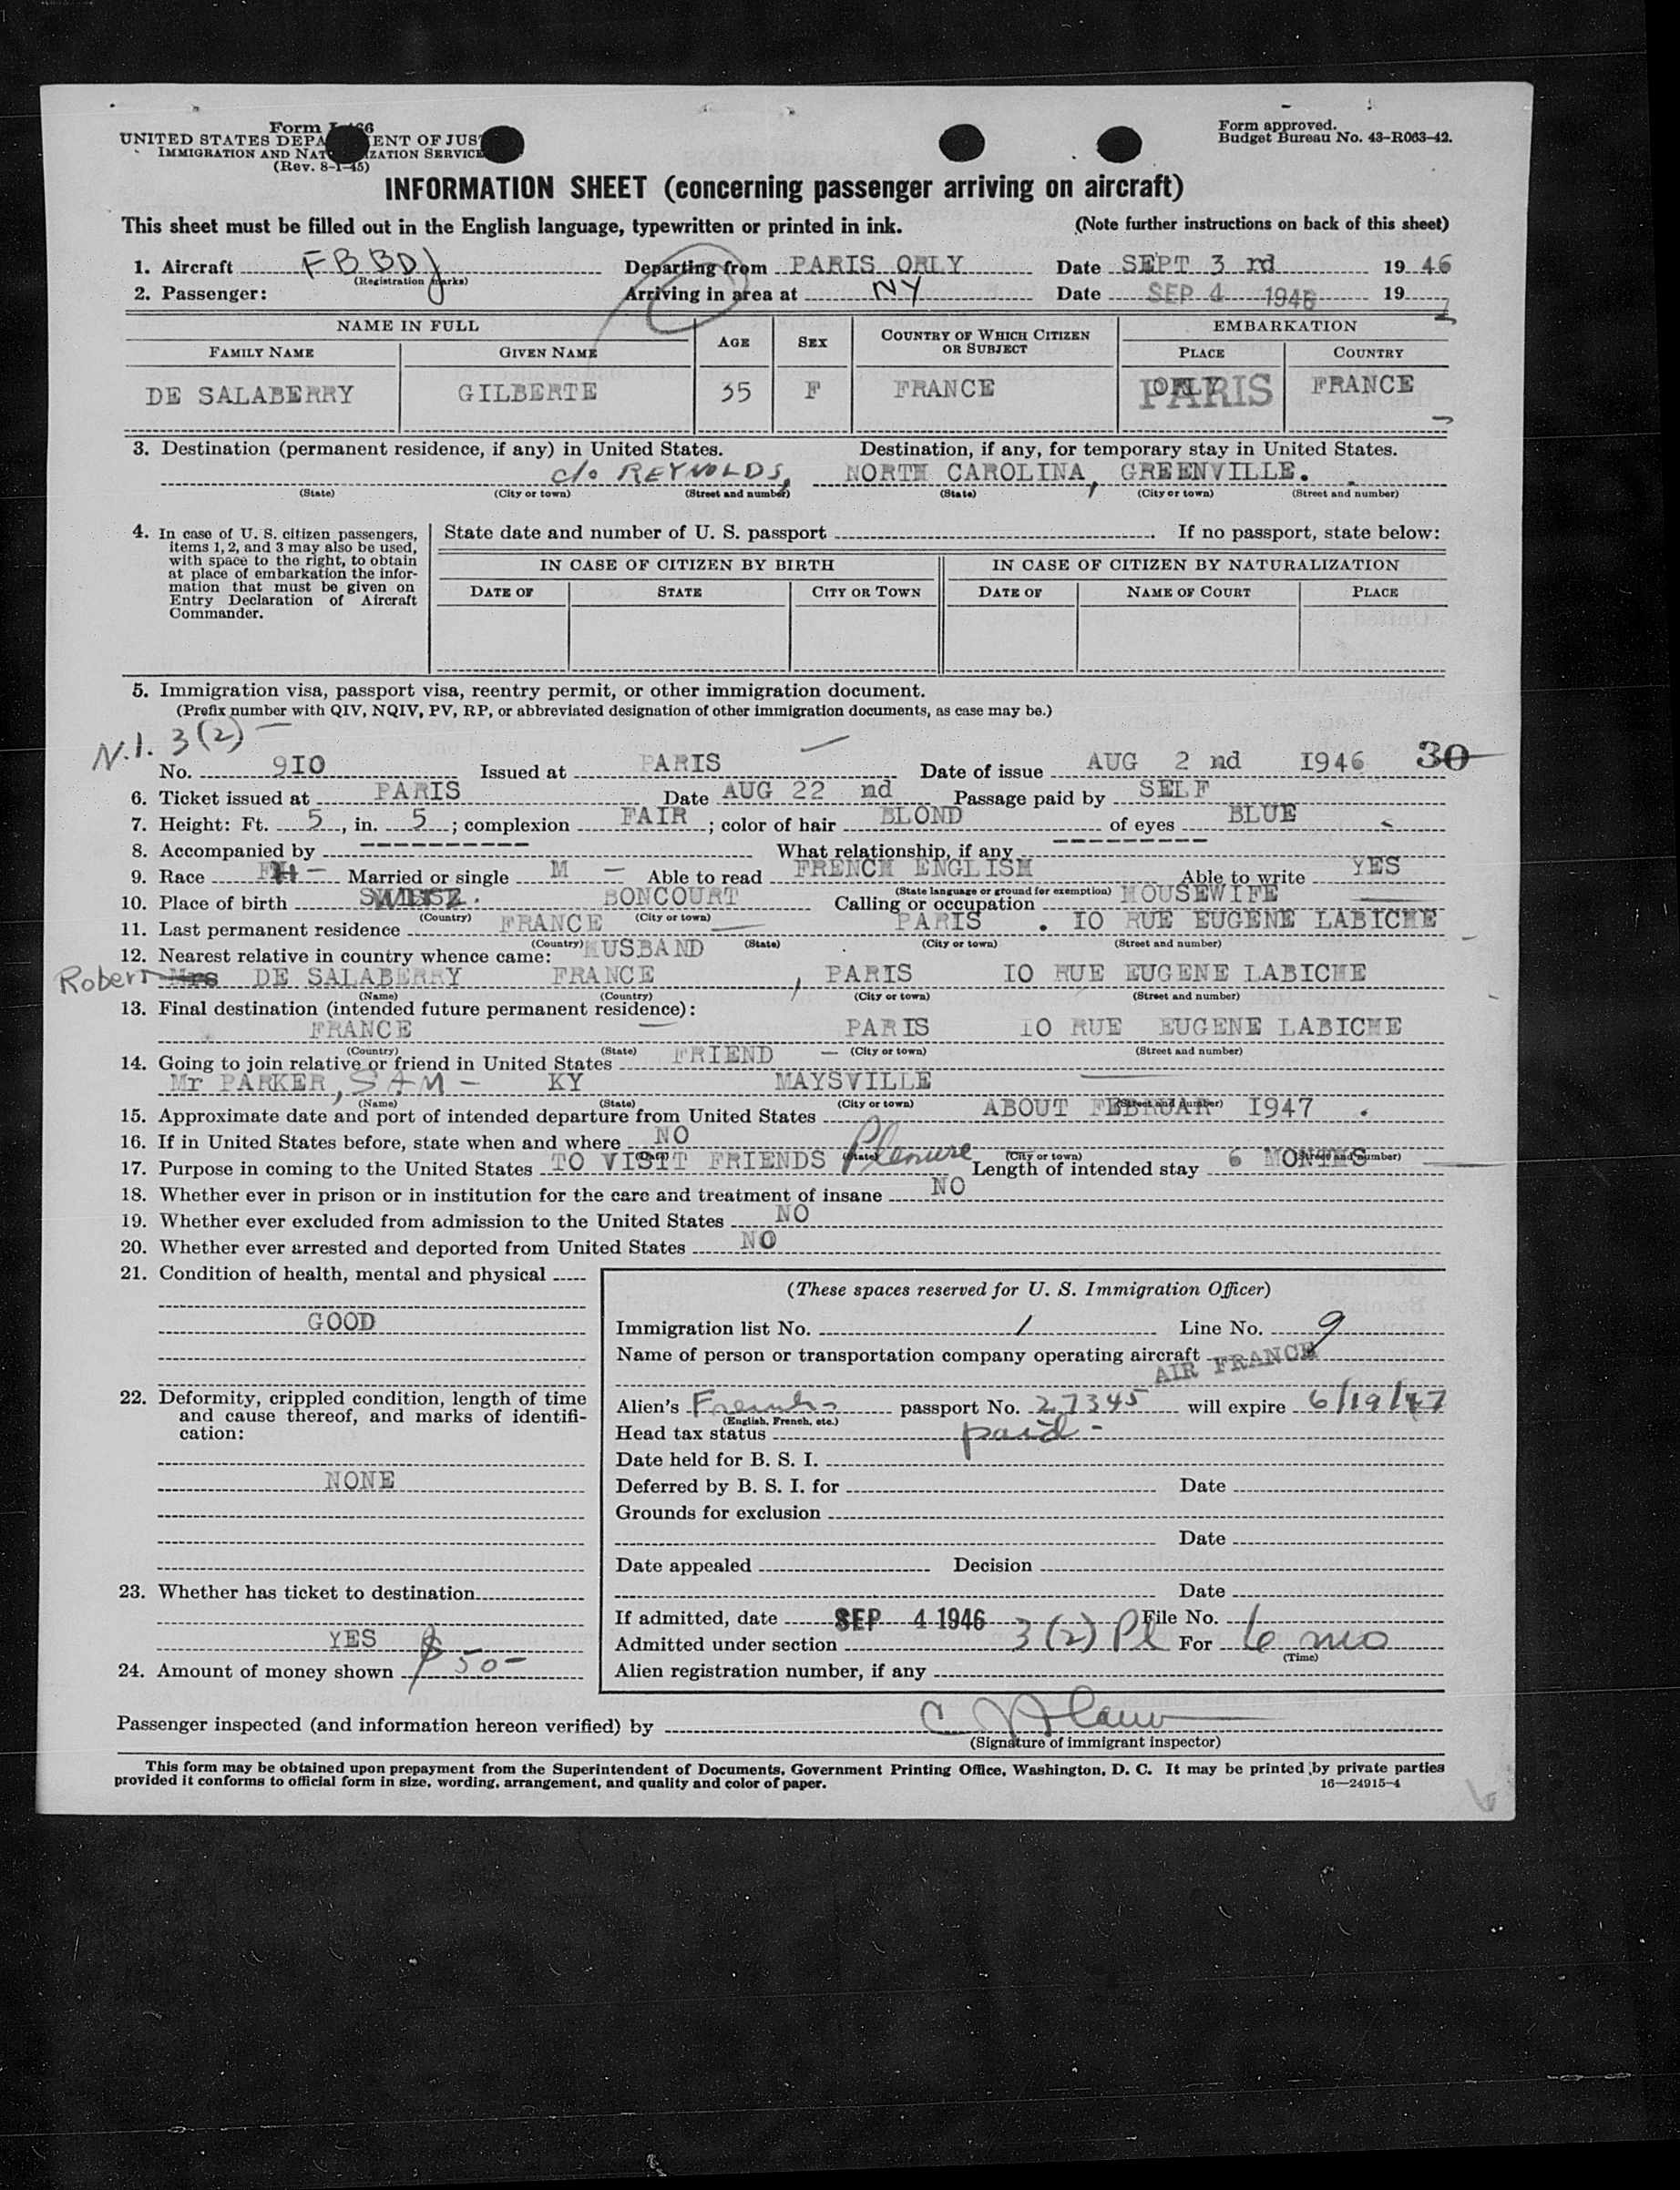 Form I-466
UNITED STATES DEPARTMENT OF JUSTICE
IMMIGRATION AND NATURALIZATION SERVICE
(Rev. 8-1-45)
Form approved.
Budget Bureau No. 43-R063-42.
INFORMATION SHEET (concerning passenger arriving on aircraft)
This sheet must be filled out in the English language, typewritten or printed in ink. (Note further instructions on back of this sheet)
1. Aircraft FBBDJ Departing from PARIS ORLY Date SEPT 3 rd 19 46
(Registration marks)
2. Passenger: Arriving in area at NY Date SEP 4 1946 19
NAME IN FULL AGE SEX COUNTRY OF WHICH CITIZEN OR SUBJECT EMBARKATION
FAMILY NAME GIVEN NAME PLACE COUNTRY
DE SALABERRY GILBERTE 35 F FRANCE ORLY PARIS FRANCE
3. Destination (permanent residence, if any) in United States. Destination, if any, for temporary stay in United States.
c/o REYNOLDS, NORTH CAROLINA, GREENVILLE.
(State) (City or town) (Street and number) (State) (City or town) (Street and number)
4. In case of U. S. citizen passengers, items 1, 2, and 3 may also be used, with space to the right, to obtain at place of embarkation the information that must be given on Entry Declaration of Aircraft Commander.
State date and number of U. S. passport If no passport, state below:
IN CASE OF CITIZEN BY BIRTH IN CASE OF CITIZEN BY NATURALIZATION
DATE OF STATE CITY OR TOWN DATE OF NAME OF COURT PLACE
5. Immigration visa, passport visa, reentry permit, or other immigration document.
(Prefix number with QIV, NQIV, PV, RP, or abbreviated designation of other immigration documents, as case may be.)
N.I. 3(2) -
No. 9IO Issued at PARIS Date of issue AUG 2 nd I946 30
6. Ticket issued at PARIS Date AUG 22 nd Passage paid by SELF
7. Height: Ft. 5, in. 5; complexion FAIR; color of hair BLOND of eyes BLUE
8. Accompanied by ---------- What relationship, if any ---------
9. Race FH - Married or single M - Able to read FRENCH ENGLISH Able to write YES
(State language or ground for exemption)
10. Place of birth BONCOURT Calling or occupation HOUSEWIFE
(Country) (City or town)
11. Last permanent residence FRANCE PARIS . IO RUE EUGENE LABICHE
(Country) (State) (City or town) (Street and number)
12. Nearest relative in country whence came: HUSBAND
Robert Mrs DE SALABERRY FRANCE , PARIS IO RUE EUGENE LABICHE
(Name) (Country) (City or town) (Street and number)
13. Final destination (intended future permanent residence):
FRANCE PARIS IO RUE EUGENE LABICHE
(Country) (State) (City or town) (Street and number)
14. Going to join relative or friend in United States FRIEND -
Mr PARKER, SAM - KY MAYSVILLE
(Name) (State) (City or town) (Street and number)
15. Approximate date and port of intended departure from United States ABOUT FEBRUAR I947 .
16. If in United States before, state when and where NO
(Date) (State) (City or town) (Street and number)
17. Purpose in coming to the United States TO VISIT FRIENDS Pleasure Length of intended stay 6 MONTHS
18. Whether ever in prison or in institution for the care and treatment of insane NO
19. Whether ever excluded from admission to the United States NO
20. Whether ever arrested and deported from United States NO
21. Condition of health, mental and physical
GOOD
22. Deformity, crippled condition, length of time and cause thereof, and marks of identification:
NONE
23. Whether has ticket to destination
YES
24. Amount of money shown $ 50-
(These spaces reserved for U. S. Immigration Officer)
Immigration list No. 1 Line No. 9
Name of person or transportation company operating aircraft
AIR FRANCE
Alien's French passport No. 27345 will expire 6/19/47
(English, French, etc.)
Head tax status paid -
Date held for B. S. I.
Deferred by B. S. I. for Date
Grounds for exclusion
Date
Date appealed Decision
Date
If admitted, date SEP 4 1946 File No.
Admitted under section 3(2) Pl For 6 mo
(Time)
Alien registration number, if any
Passenger inspected (and information hereon verified) by
(Signature of immigrant inspector)
This form may be obtained upon prepayment from the Superintendent of Documents, Government Printing Office, Washington, D. C. It may be printed by private parties
provided it conforms to official form in size, wording, arrangement, and quality and color of paper. 16—24915-4